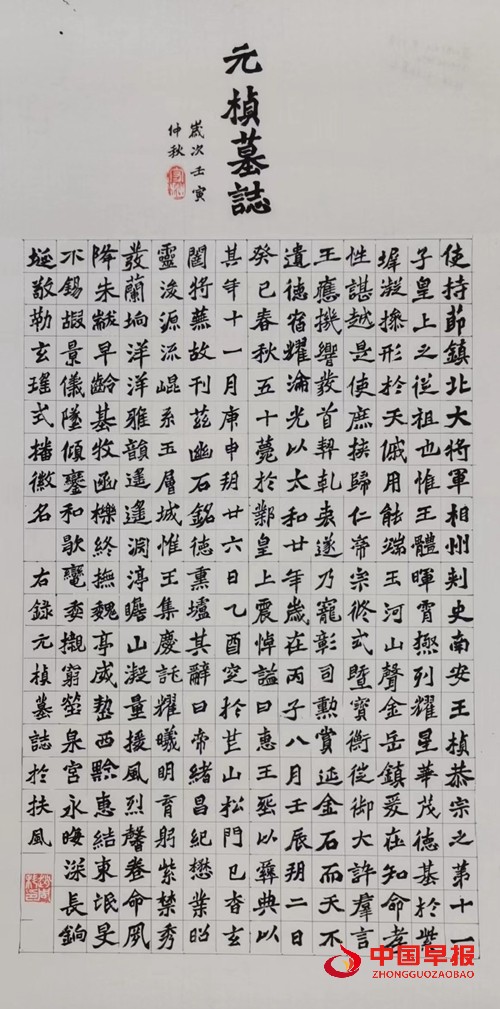 元楨墓誌
歲次壬寅
仲秋
使持節鎮北大將軍相州刺史南安王楨恭宗之第十一
子皇上之從祖也惟王體暉霄極列耀星華茂德基於紫
墀凝操形於天戚用能端玉河山聲金岳鎮爰在知命孝
性諶越是使庶族歸仁帝宗攸式暨寶衡從御大訊羣言
王應機響發首契乾衷遂乃寵彰司勳賞延金石而天不
遺德宿耀淪光以太和廿年歲在丙子八月壬辰朔二日
癸巳春秋五十薨於鄴皇上震悼謚曰惠王葬以彝典以
其年十一月庚申朔廿六日乙酉窆於芒山松門已杳玄
闥將蕪故刊茲幽石銘德熏壚其辭曰帝緒昌紀懋業昭
靈浚源流崐系玉層城惟王集慶託耀曦明育躬紫禁秀
發蘭坰洋洋雅韻遙遙淵渟瞻山凝量援風烈馨卷命夙
降朱黻早齡基牧函櫟終撫魏亭威整西黔惠結東氓旻
不錫嘏景儀墜傾鑾和歇轡委櫬窮塋泉宮永晦深長扃
埏敬勒玄瑤式播徽名 右録元楨墓誌於扶風
中国早报
ZHONGGUOZAOBAO